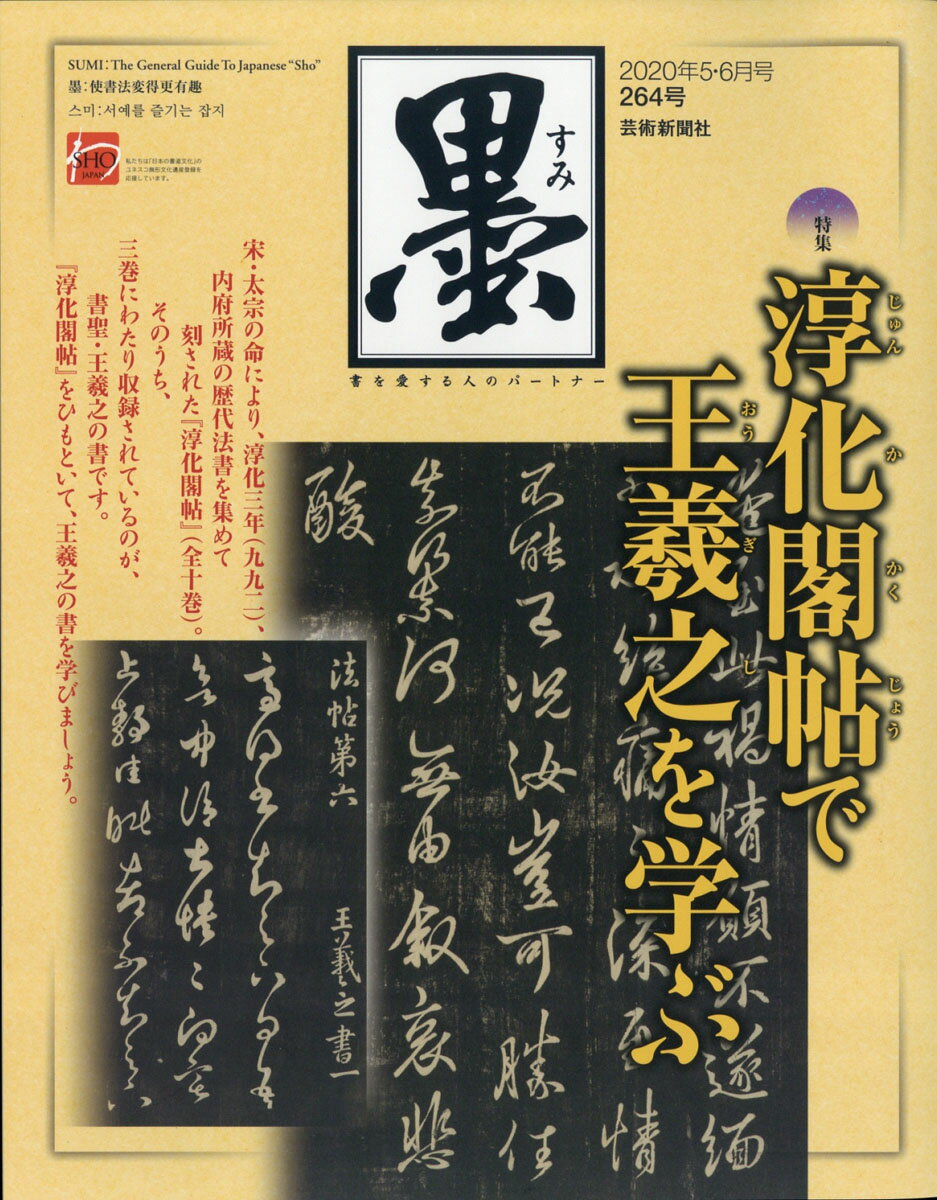 SUMI：The General Guide To Japanese “Sho”
墨：使書法変得更有趣
스미：서예를 즐기는 잡지
SHO
JAPAN
私たちは「日本の書道文化」の
ユネスコ無形文化遺産登録を
応援しています。
墨
すみ
書を愛する人のパートナー
2020年5・6月号
264号
芸術新聞社
特集
淳化閣帖で
じゅんかかくじょう
王羲之を学ぶ
おうぎし
宋・太宗の命により、淳化三年（九九二）、
内府所蔵の歴代法書を集めて
刻された『淳化閣帖』（全十巻）。
そのうち、
三巻にわたり収録されているのが、
書聖・王羲之の書です。
『淳化閣帖』をひもといて、王羲之の書を学びましょう。
此禍情願不遂緬
痛深至情
不能已況汝豈可勝任
奈何奈何無由叙哀悲
酸
法帖第六 王羲之書一